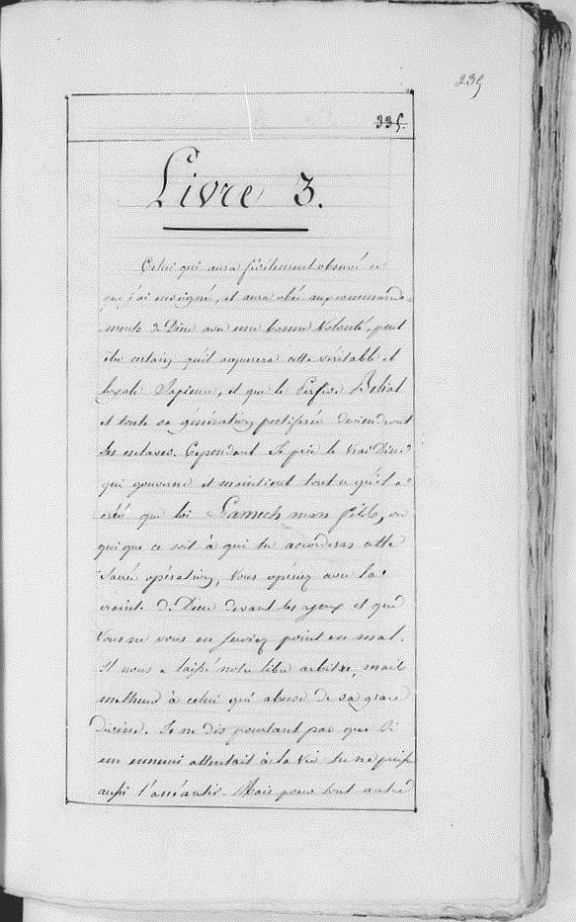 235
335.
Livre 3.
Celui qui aura fidèlement observé ce
que j'ai enseigné, et aura obéi aux commande-
ments de Dieu avec une bonne Volonté, peut
être certain qu'il acquerera cette véritable et
loyale Sapience, et que le Perfide Belial
et toute sa génération pestiférée deviendront
ses esclaves. Cependant Je prie le Vrai Dieu
qui gouverne et maintient tout ce qu'il a
créé que toi Lamech mon fils, ou
quique ce soit à qui tu accorderas cette
Sacrée opération, Vous opériez avec la
crainte de Dieu devant les yeux et que
Vous ne vous en serviez point en mal.
Il nous a laissé notre libre arbitre, mais
malheur à celui qui abuse de sa grace
divine. Je ne dis pourtant pas que Si
un ennemi attentait à ta Vie tu ne puisse
aussi l'anéantir. Mais pour tout autre